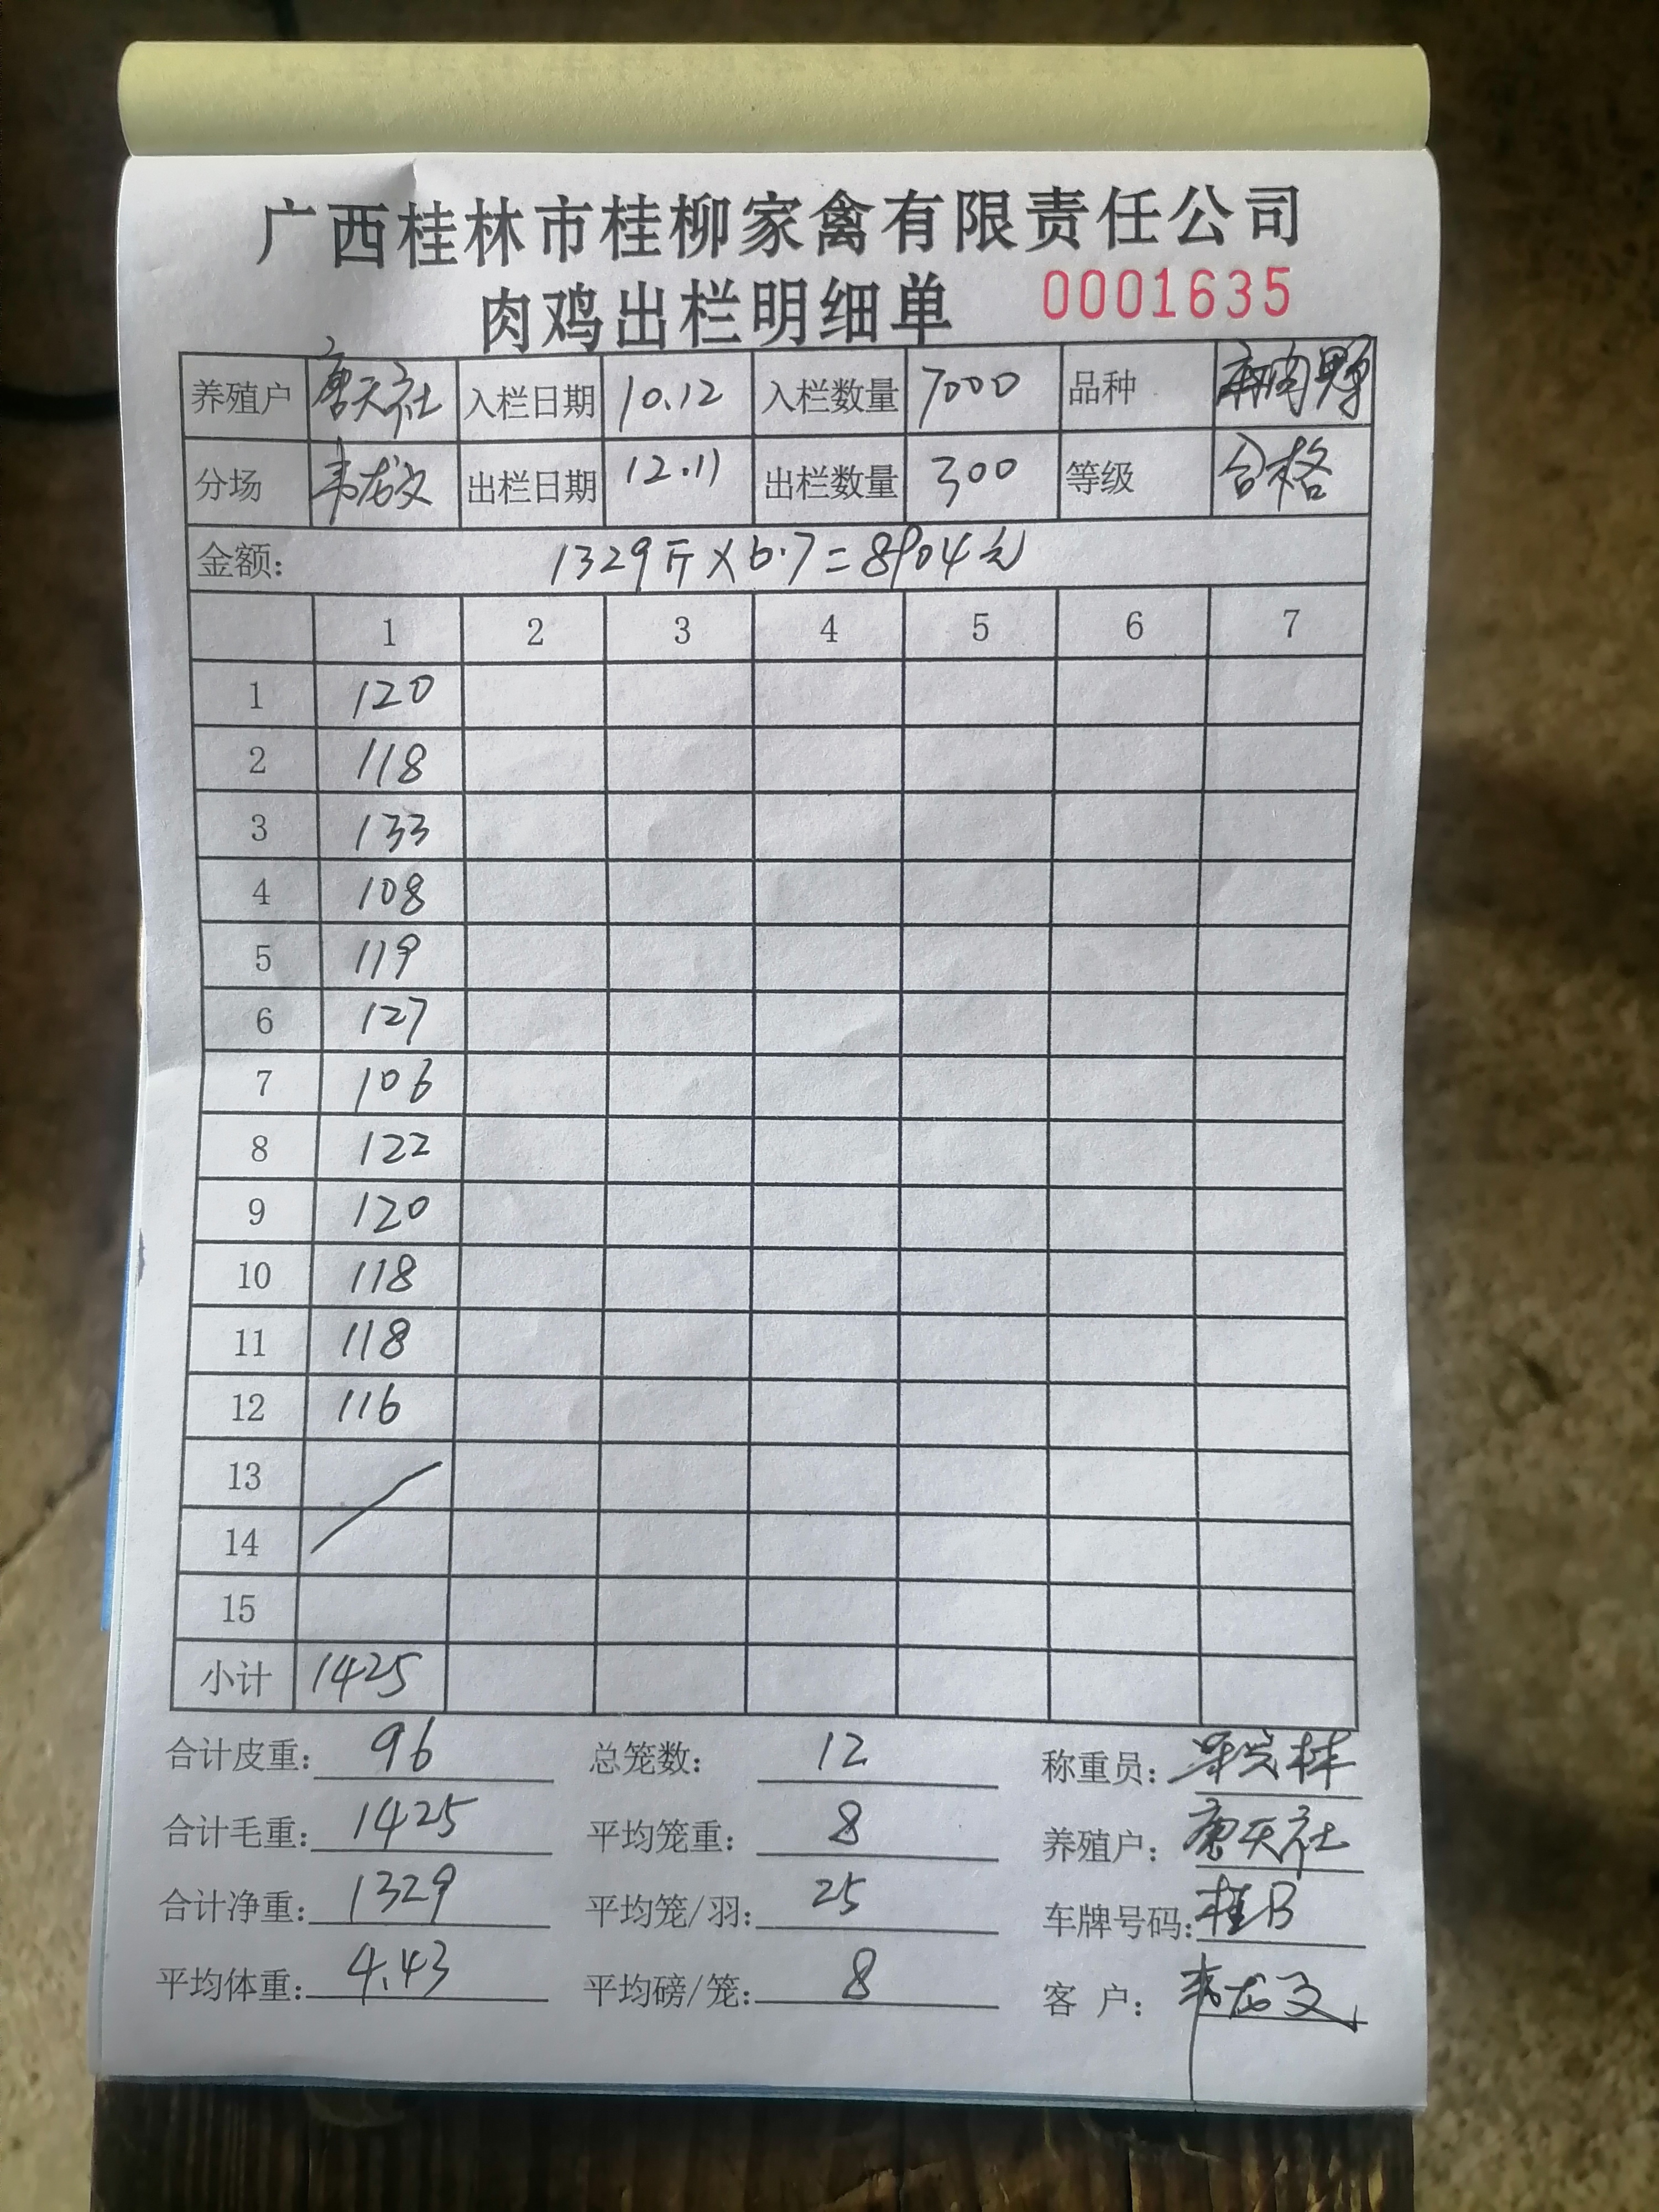 广西桂林市桂柳家禽有限责任公司
肉鸡出栏明细单 0001635
养殖户 唐天社 入栏日期 10.12 入栏数量 7000 品种
分场 韦龙文 出栏日期 12.11 出栏数量 300 等级 合格
金额: 1329斤×6.7=8904元
1 2 3 4 5 6 7
1 120
2 118
3 133
4 108
5 119
6 127
7 106
8 122
9 120
10 118
11 118
12 116
13
14
15
小计 1425
合计皮重: 96 总笼数: 12 称重员:
合计毛重: 1425 平均笼重: 8 养殖户: 唐天社
合计净重: 1329 平均笼/羽: 25 车牌号码: 桂B
平均体重: 4.43 平均磅/笼: 8 客 户: 韦龙文